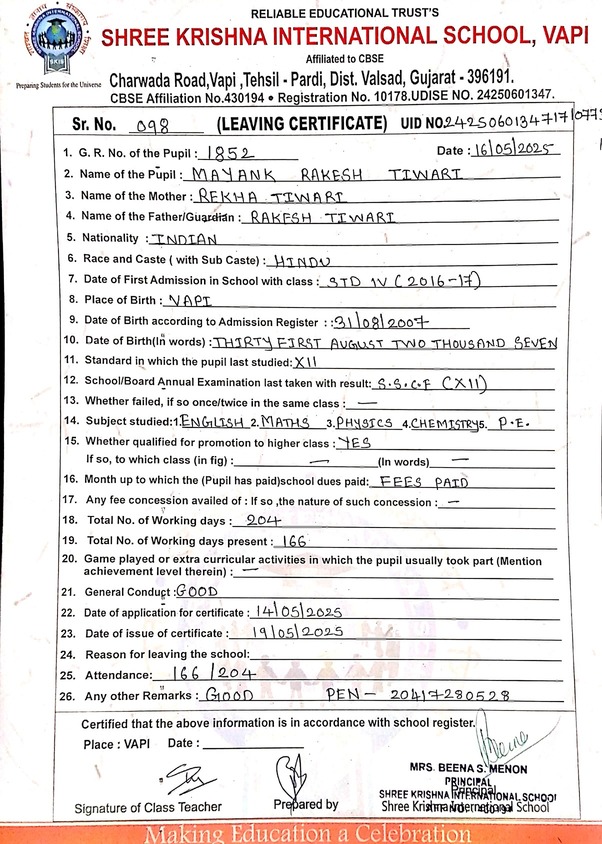 RELIABLE EDUCATIONAL TRUST'S
SHREE KRISHNA INTERNATIONAL SCHOOL, VAPI
Affiliated to CBSE
Preparing Students for the Universe
Charwada Road,Vapi ,Tehsil - Pardi, Dist. Valsad, Gujarat - 396191.
CBSE Affiliation No.430194 • Registration No. 10178.UDISE NO. 24250601347.
Sr. No. 098 (LEAVING CERTIFICATE) UID NO.
1. G. R. No. of the Pupil : 1852 Date : 16/05/2025
2. Name of the Pupil : MAYANK RAKESH TIWARI
3. Name of the Mother : REKHA TIWARI
4. Name of the Father/Guardian : RAKESH TIWARI
5. Nationality : INDIAN
6. Race and Caste ( with Sub Caste) : HINDU
7. Date of First Admission in School with class : STD IV (2016-17)
8. Place of Birth : VAPI
9. Date of Birth according to Admission Register : :31/08/2007
10. Date of Birth(In words) : THIRTY FIRST AUGUST TWO THOUSAND SEVEN
11. Standard in which the pupil last studied: XII
12. School/Board Annual Examination last taken with result: (XII)
13. Whether failed, if so once/twice in the same class : —
14. Subject studied:1.ENGLISH 2.MATHS 3.PHYSICS 4.CHEMISTRY5. P.E.
15. Whether qualified for promotion to higher class : YES
If so, to which class (in fig) : — (In words) —
16. Month up to which the (Pupil has paid)school dues paid: FEES PAID
17. Any fee concession availed of : If so ,the nature of such concession : —
18. Total No. of Working days : 204
19. Total No. of Working days present : 166
20. Game played or extra curricular activities in which the pupil usually took part (Mention
achievement level therein) : —
21. General Conduct :GOOD
22. Date of application for certificate : 14/05/2025
23. Date of issue of certificate : 19/05/2025
24. Reason for leaving the school:
25. Attendance: 166/204
26. Any other Remarks : GOOD PEN- 20417280528
Certified that the above information is in accordance with school register.
Place : VAPI Date :
Beena
MRS. BEENA S. MENON
PRINCIPAL
SHREE KRISHNA INTERNATIONAL SCHOOL
Principal
Signature of Class Teacher Prepared by Shree Krishna International School
Making Education a Celebration